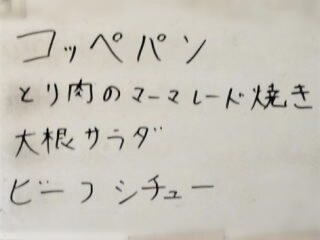 コッペパン
とり肉のマーマレード焼き
大根サラダ
ビーフシチュー